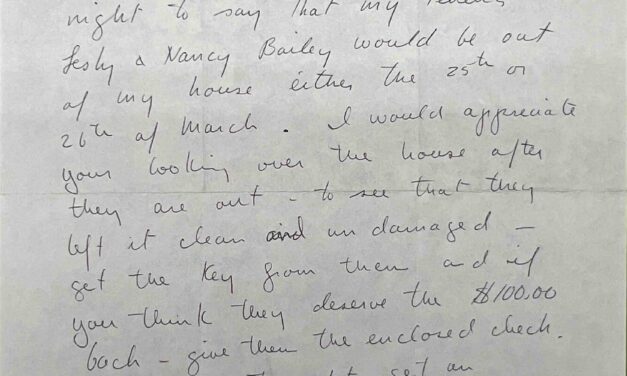 night to say that my
Lesly & Nancy Bailey would be out
of my house either the 25th or
26th of March. I would appreciate
your looking over the house after
they are out - to see that they
left it clean and undamaged -
get the key from them and if
you think they deserve the $100.00
back - give them the enclosed check.
get an